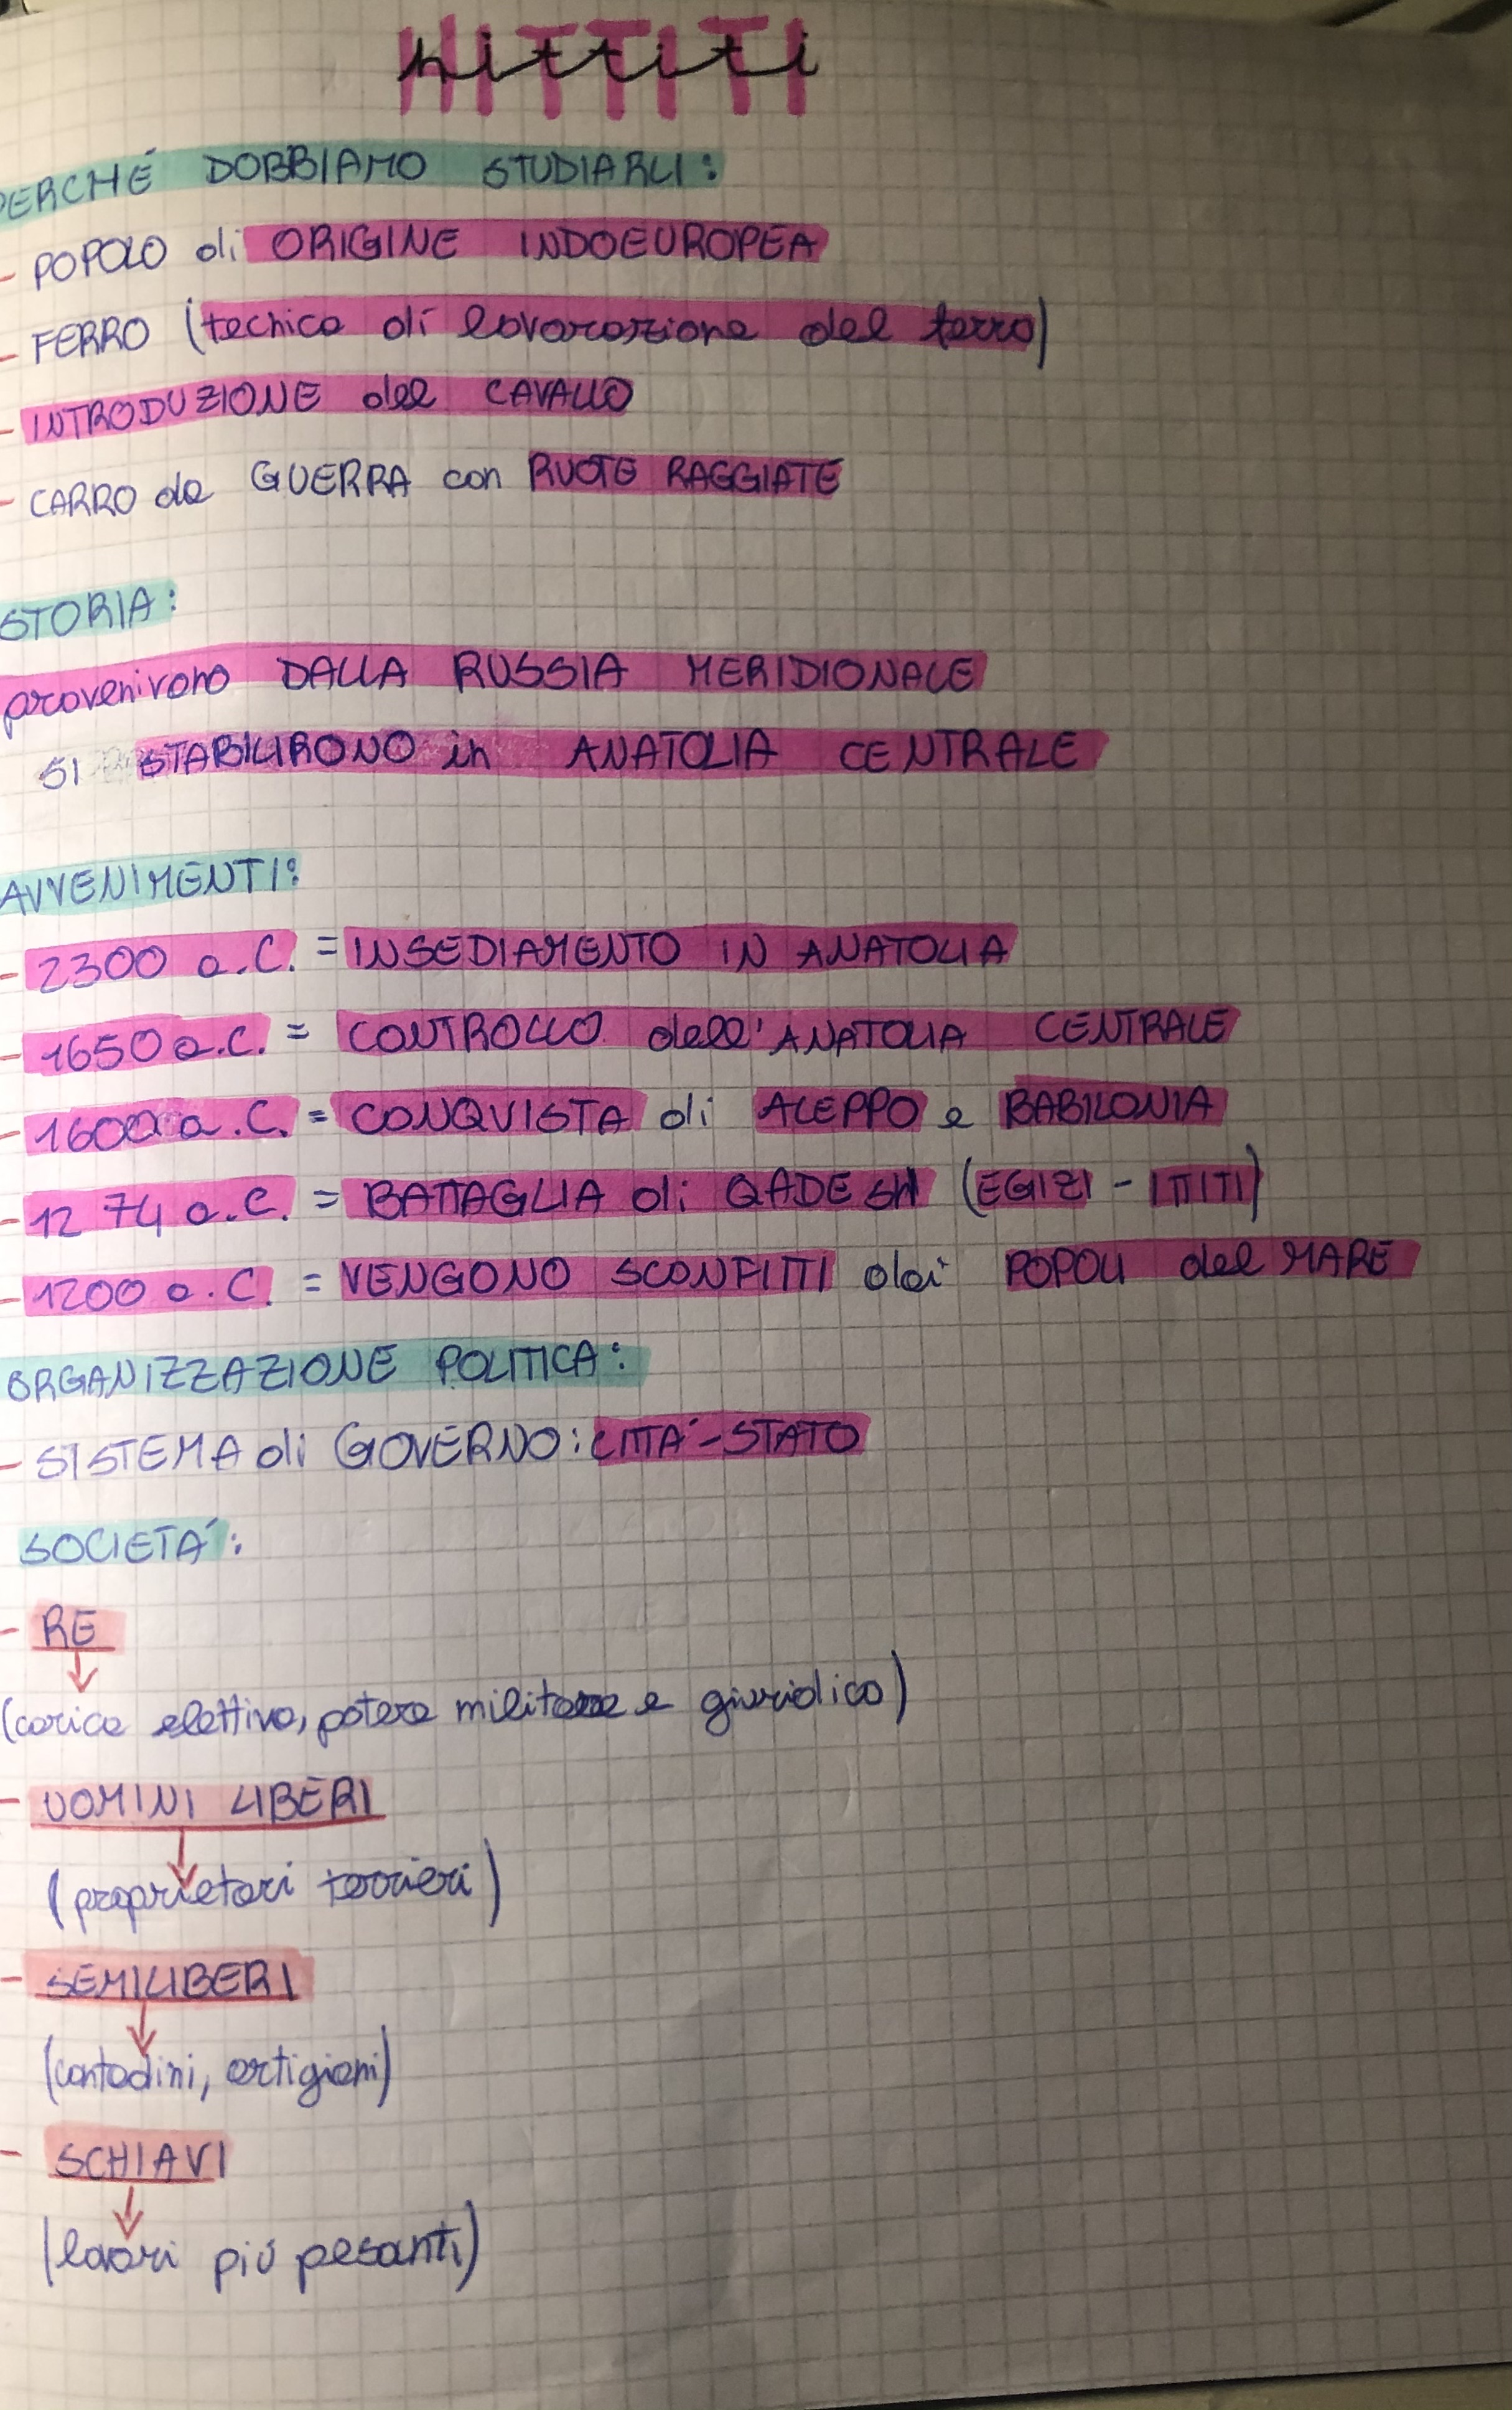 HITTITI
hittiti
PERCHÉ DOBBIAMO STUDIARLI:
- POPOLO di ORIGINE INDOEUROPEA
- FERRO (tecnica di lavorazione del ferro)
- INTRODUZIONE del CAVALLO
- CARRO da GUERRA con RUOTE RAGGIATE
STORIA:
provenivano DALLA RUSSIA MERIDIONALE
SI STABILIRONO in ANATOLIA CENTRALE
AVVENIMENTI:
- 2300 a.C. = INSEDIAMENTO IN ANATOLIA
- 1650 a.C. = CONTROLLO dell'ANATOLIA CENTRALE
- 1600 a.C. = CONQUISTA di ALEPPO e BABILONIA
- 1274 a.C. = BATTAGLIA di QADESH (EGIZI - ITTITI)
- 1200 a.C. = VENGONO SCONFITTI dai POPOLI del MARE
ORGANIZZAZIONE POLITICA:
- SISTEMA di GOVERNO: CITTÀ-STATO
SOCIETÀ:
- RE
(carica elettiva, potere militare e giuridico)
- UOMINI LIBERI
(proprietari terrieri)
- SEMILIBERI
(contadini, artigiani)
- SCHIAVI
(lavori più pesanti)